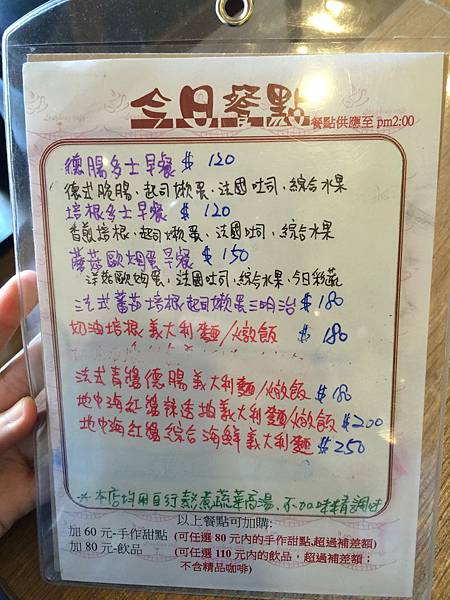 今日餐點 餐點供應至 pm2:00
德腸多士早餐 $ 120
德式脆腸、起司嫩蛋、法國吐司、綜合水果
培根多士早餐 $ 120
香煎培根、起司嫩蛋、法國吐司、綜合水果
蘑菇歐姆蛋早餐 $ 150
洋菇歐姆蛋、法國吐司、綜合水果、今日彩蔬
法式蕃茄培根起司嫩蛋三明治 $ 180
奶油培根義大利麵/燉飯 $ 180
法式青醬德腸義大利麵/燉飯 $ 180
地中海紅醬辣透抽義大利麵/燉飯 $ 200
地中海紅醬綜合海鮮義大利麵 $ 250
※本店均用自行熬煮蔬菜高湯、不加味精調味
以上餐點可加購:
加 60 元-手作甜點 (可任選 80 元內的手作甜點、超過補差額)
加 80 元-飲品 (可任選 110 元內的飲品，超過補差額；
不含精品咖啡)